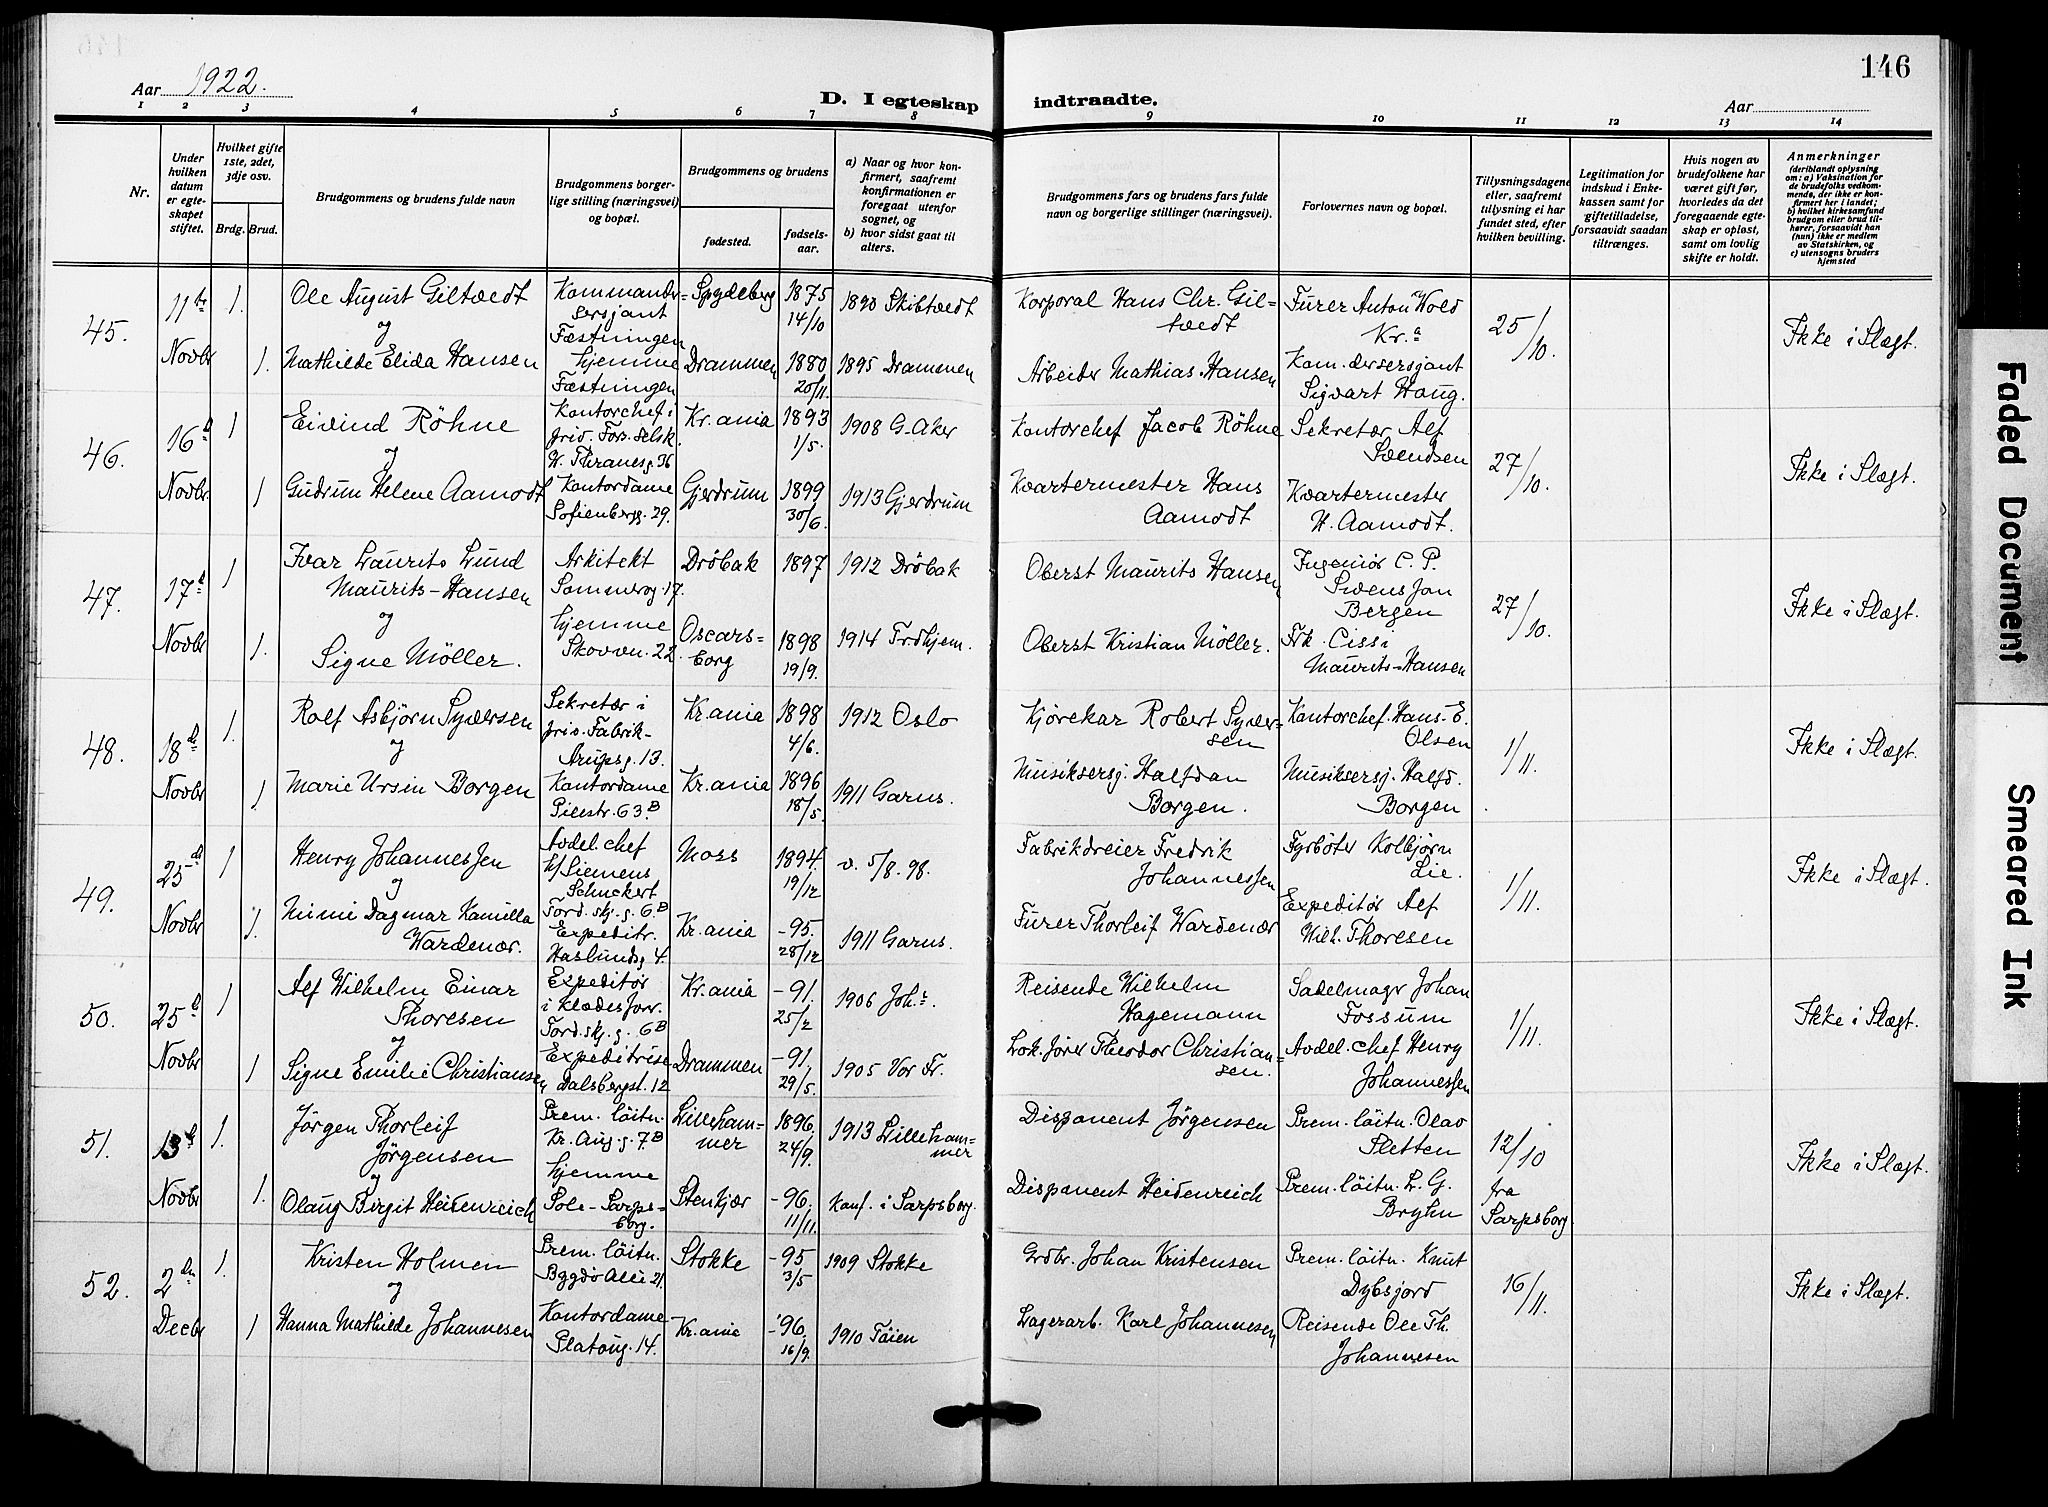 146
Aar 1922.
D. I egteskap indtraadte.
Aar
1 2 3 4 5 6 7 8 9 10 11 12 13 14
Nr.
Under hvilken datum er egteskapet stiftet.
Hvilket gifte 1ste, 2det, 3dje osv.
Brdg. Brud.
Brudgommens og brudens fulde navn
Brudgommens borgerlige stilling (næringsvei) og bopæl.
Brudgommens og brudens
fødested.
fødselsaar.
a) Naar og hvor konfirmert, saafremt konfirmationen er foregaat utenfor sognet, og
b) hvor sidst gaat til alters.
Brudgommens fars og brudens fars fulde navn og borgerlige stillinger (næringsvei).
Forlovernes navn og bopæl.
Tillysningsdagene eller, saafremt tillysning ei har fundet sted, efter hvilken bevilling.
Legitimation for indskud i Enkekassen samt for giftetilladelse, forsaavidt saadan tiltrænges.
Hvis nogen av brudefolkene har været gift før, hvorledes da det foregaaende egteskap er opløst, samt om lovlig skifte er holdt.
Anmerkninger (deriblandt oplysning om: a) Vaksination for de brudefolks vedkommende, der ikke er konfirmert her i landet; b) hvilket kirkesamfund brudgom eller brud tilhører, forsaavidt han (hun) ikke er medlem av Statskirken, og c) utensogns bruders hjemsted
45. 11te Novbr 1. 1.
Ole August Giltvedt
og
Mathilde Elida Hansen
Kommandersersjant
Fæstningen
hjemme
Fæstningen
Spydeberg 1875 14/10 1890 Skibtvedt
Drammen 1880 20/11. 1895 Drammen
Korporal Hans Chr. Giltvedt
Arbeider Mathias Hansen
Furer Anton Wold
Kr.a
Kom.dersersjant
Sigvart Haug.
25/10.
Ikke i Slægt.
46. 16d Novbr. 1 1
Eivind Röhne
og
Gudrun Helene Aamodt
Kontorchef i
priv. Fors. selsk.
W. Thranesg. 36
Kontordame
Sofienbergg. 29.
Kr.ania 1893 1/5. 1908 G. Aker
Gjerdrum 1899 30/6. 1913 Gjerdrum
Kontorchef Jacob Röhne
Kvartermester Hans
Aamodt
Sekretær Alf
Svendsen
Kvartermester
H. Aamodt.
27/10.
Ikke i Slægt.
47. 17d Novbr 1 1.
Ivar Laurits Lund
Maurits-Hansen
og
Signe Möller.
Arkitekt
Sommerog. 17.
hjemme
Skovvn. 22.
Dröbak 1897 1912 Dröbak
Oscarsborg 1898 19/9. 1914 Trdhjem.
Oberst Maurits Hansen
Oberst Kristian Möller.
Ingeniör C. P.
Svensson
Bergen
Frk. Cissi
Maurits-Hansen
27/10.
Ikke i Slægt.
48. 18d Novbr 1. 1
Rolf Asbjörn Syversen
og
Marie Ursin Borgen
Sekretær i
priv. Fabrik-
Arupsg. 13.
Kontordame
Pilestr. 63B
Kr.ania 1898 4/6. 1912 Oslo
Kr.ania 1896 18/5 1911 Garns.
Kjörekar Robert Syversen
Musiksersj. Halfdan
Borgen.
Kontorchef. Hans E.
Olsen
Musiksersj. Halfd.
Borgen
1/11.
Ikke i Slægt.
49. 25d Novbr 1 1.
Henry Johannessen
og
Mimi Dagmar Kamilla
Wardenær.
Avdel. chef
h/ Siemens
Schuckert
Tord. skj. g. 6B
Expeditr.
Haslundsg 4.
Moss 1894. 19/12 v. 5/8. 98.
Kr.ania -95. 28/12 1911 Garns.
Fabrikdreier Fredrik
Johannessen
Furer Thorleif Wardenær
Fyrböter Kolbjörn
Lie.
Expeditör Alf
Wilh. Thoresen
1/11.
Ikke i Slægt.
50. 25d Novbr 1 1
Alf Wilhelm Einar
Thoresen
og
Signe Emilie Christiansen
Expeditör
i klædesforr.
Tord. skj. g. 6B
Expeditrise
Dalsbergst. 12
Kr.ania -91. 25/2 1906 Joh.s.
Drammen -91. 29/5. 1905 Vor Fr.
Reisende Wilhelm
Hagemann
Lok. förer Theodor Christiansen.
Sadelmagr Johan
Fossum
Avdel. chef Henry
Johannessen
1/11.
Ikke i Slægt.
51. 13d Novbr 1. 1.
Jörgen Thorleif
Jörgensen
og
Olaug Birgit Heidenreich
Prem. löitn.
Kr. Aug. g. 7B
hjemme
Sole-Sarpsborg.
Lillehammer 1896 24/9. 1913 Lillehammer
Stenkjær -96. 11/11. Konf. i Sarpsborg.
Disponent Jörgensen
Disponent Heidenreich
Prem. löitn. Olav
Sletten
Prem. löitn. L. G.
Bryhn
12/10
fra
Sarpsborg
Ikke i Slægt.
52. 2den Decbr 1. 1
Kristen Holmen
og
Hanna Mathilde Johannesen
Prem. löitn.
Bygdö Allé 21.
Kontordame
Platoug. 14.
Stokke -95 3/5 1909 Stokke
Kr.ania -96. 16/9. 1910 Töien
Grdbr. Johan Kristensen
Lagerarb. Karl Johannesen
Prem. löitn. Knut
Dybsjord
Reisende Ole Th.
Johannesen
16/11.
Ikke i Slægt.
Faded Document
Smeared Ink